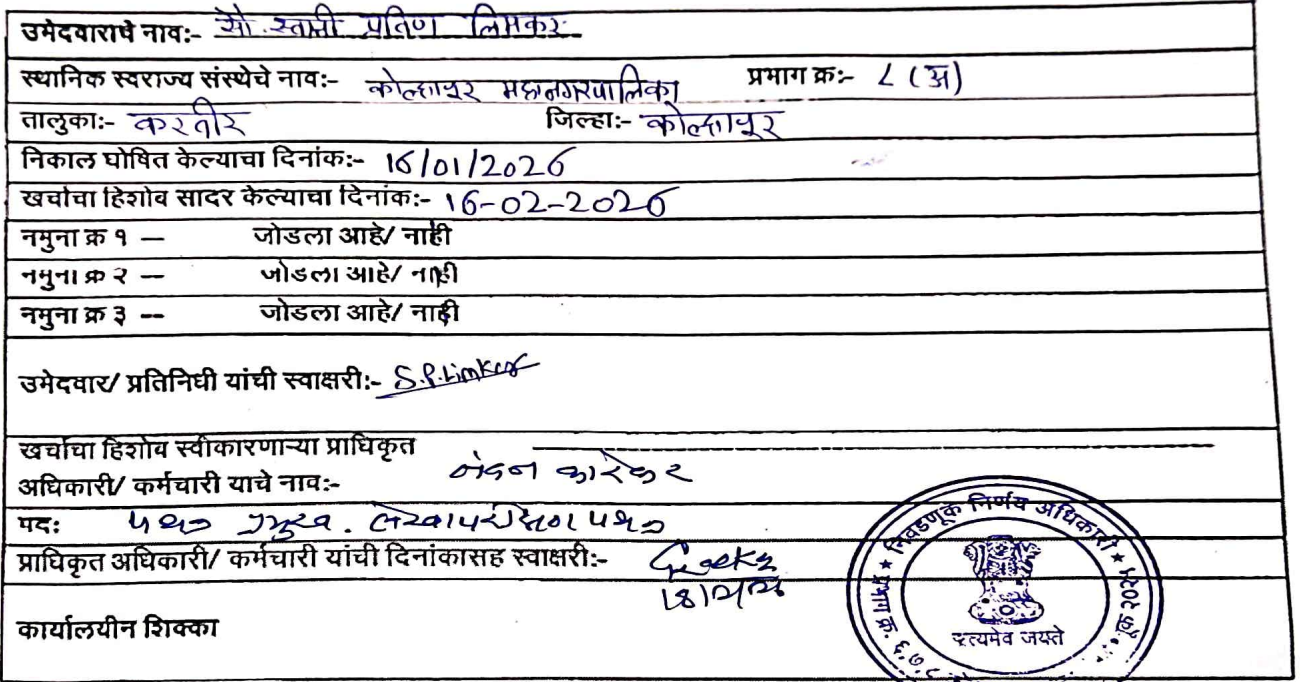 उमेदवाराचे नाव:- सौ. स्वाती प्रविण लिमकर
स्थानिक स्वराज्य संस्थेचे नाव:- कोल्हापूर महानगरपालिका प्रभाग क्र:- ८ (अ)
तालुका:- करवीर जिल्हा:- कोल्हापूर
निकाल घोषित केल्याचा दिनांक:- 16/01/2026
खर्चाचा हिशोब सादर केल्याचा दिनांक:- 16-02-2026
नमुना क्र १ — जोडला आहे/ नाही
नमुना क्र २ — जोडला आहे/ नाही
नमुना क्र ३ -- जोडला आहे/ नाही
उमेदवार/ प्रतिनिधी यांची स्वाक्षरी:- S.P.Limkar
खर्चाचा हिशोब स्वीकारणाऱ्या प्राधिकृत
अधिकारी/ कर्मचारी याचे नाव:- नंदन कारेकर
पद: पथक प्रमुख. लेखापरीक्षण पथक
प्राधिकृत अधिकारी/ कर्मचारी यांची दिनांकासह स्वाक्षरी:-
कार्यालयीन शिक्का
निवडणूक निर्णय अधिकारी
प्रभाग क्र. ६,७,८
सत्यमेव जयते